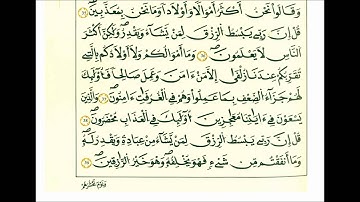 وَقَالُوا۟ نَحْنُ أَكْثَرُ أَمْوَٰلًا وَأَوْلَٰدًا وَمَا نَحْنُ بِمُعَذَّبِينَ ۝٣٥
قُلْ إِنَّ رَبِّى يَبْسُطُ ٱلرِّزْقَ لِمَن يَشَآءُ وَيَقْدِرُ وَلَٰكِنَّ أَكْثَرَ
ٱلنَّاسِ لَا يَعْلَمُونَ ۝٣٦ وَمَآ أَمْوَٰلُكُمْ وَلَآ أَوْلَٰدُكُم بِٱلَّتِى
تُقَرِّبُكُمْ عِندَنَا زُلْفَىٰٓ إِلَّا مَنْ ءَامَنَ وَعَمِلَ صَٰلِحًا فَأُو۟لَٰٓئِكَ
لَهُمْ جَزَآءُ ٱلضِّعْفِ بِمَا عَمِلُوا۟ وَهُمْ فِى ٱلْغُرُفَٰتِ ءَامِنُونَ ۝٣٧ وَٱلَّذِينَ
يَسْعَوْنَ فِىٓ ءَايَٰتِنَا مُعَٰجِزِينَ أُو۟لَٰٓئِكَ فِى ٱلْعَذَابِ مُحْضَرُونَ ۝٣٨
قُلْ إِنَّ رَبِّى يَبْسُطُ ٱلرِّزْقَ لِمَن يَشَآءُ مِنْ عِبَادِهِۦ وَيَقْدِرُ لَهُۥ
وَمَآ أَنفَقْتُم مِّن شَىْءٍ فَهُوَ يُخْلِفُهُۥ وَهُوَ خَيْرُ ٱلرَّٰزِقِينَ ۝٣٩
ويوم يحشرهم